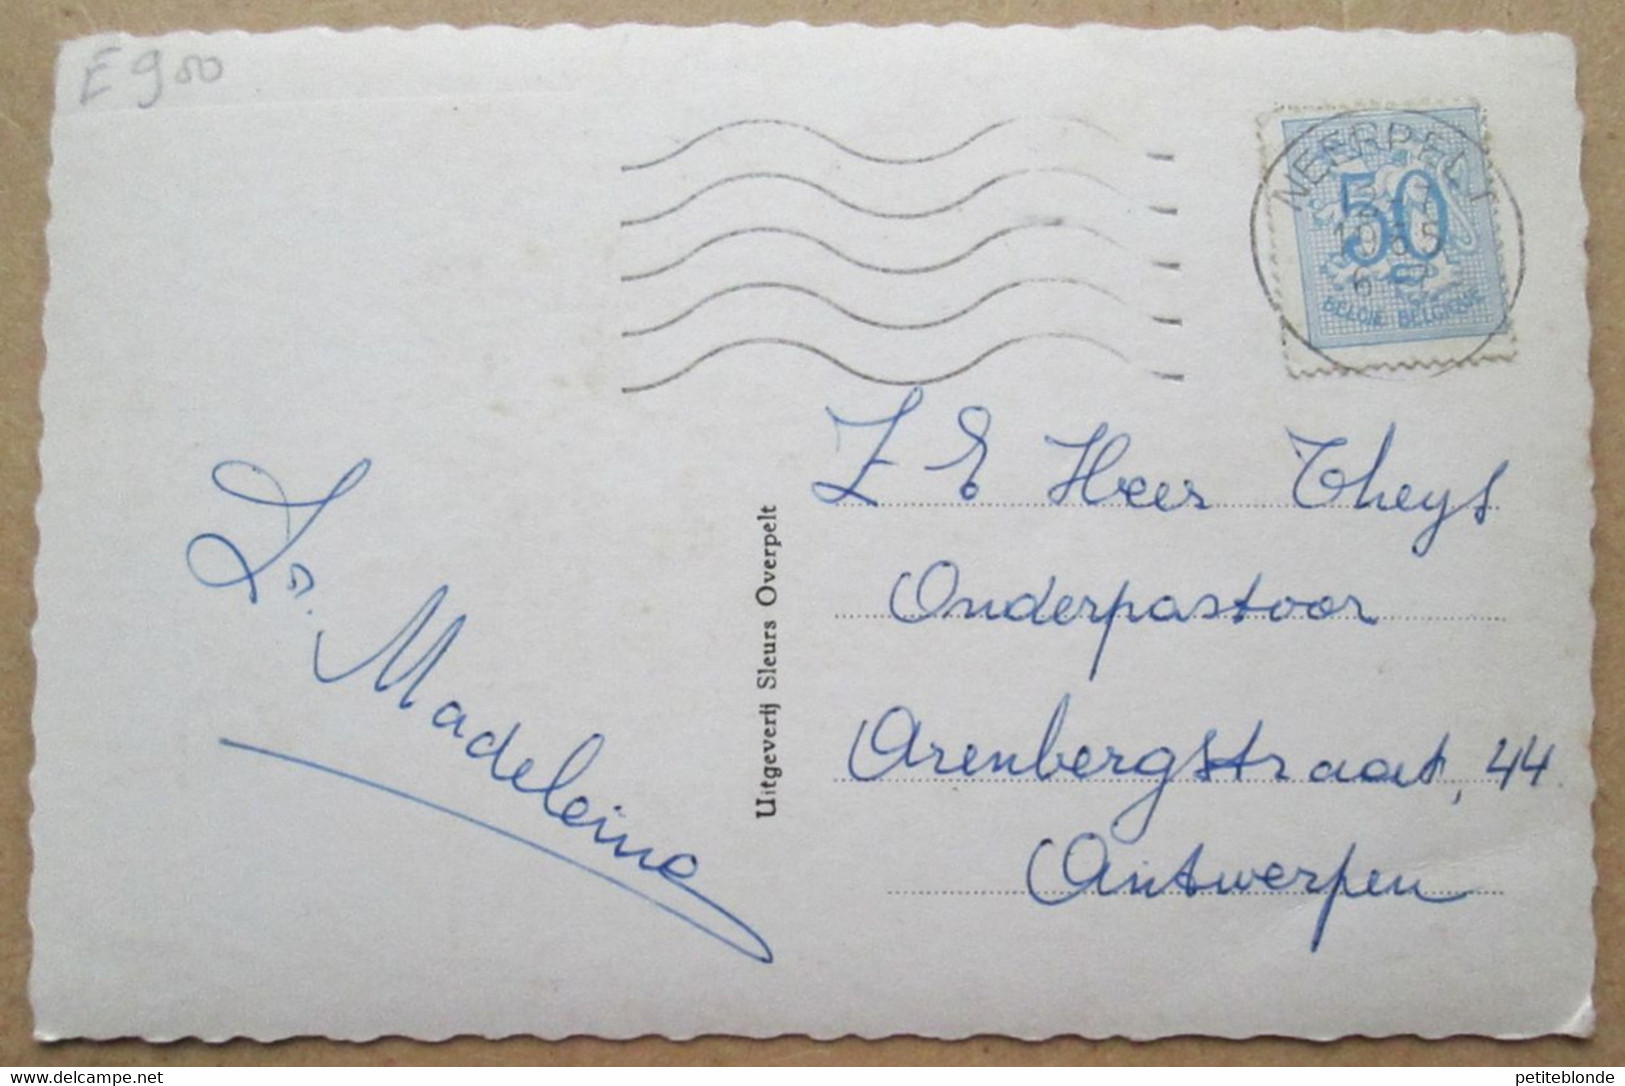 E 900
NEERPELT
50
BELGIE BELGIQUE
Z E Heer Theys
Onderpastoor
Arenbergstraat, 44
Antwerpen
Zr. Madeleine
Uitgeverij Sleurs Overpelt
www.delcampe.net
petiteblonde